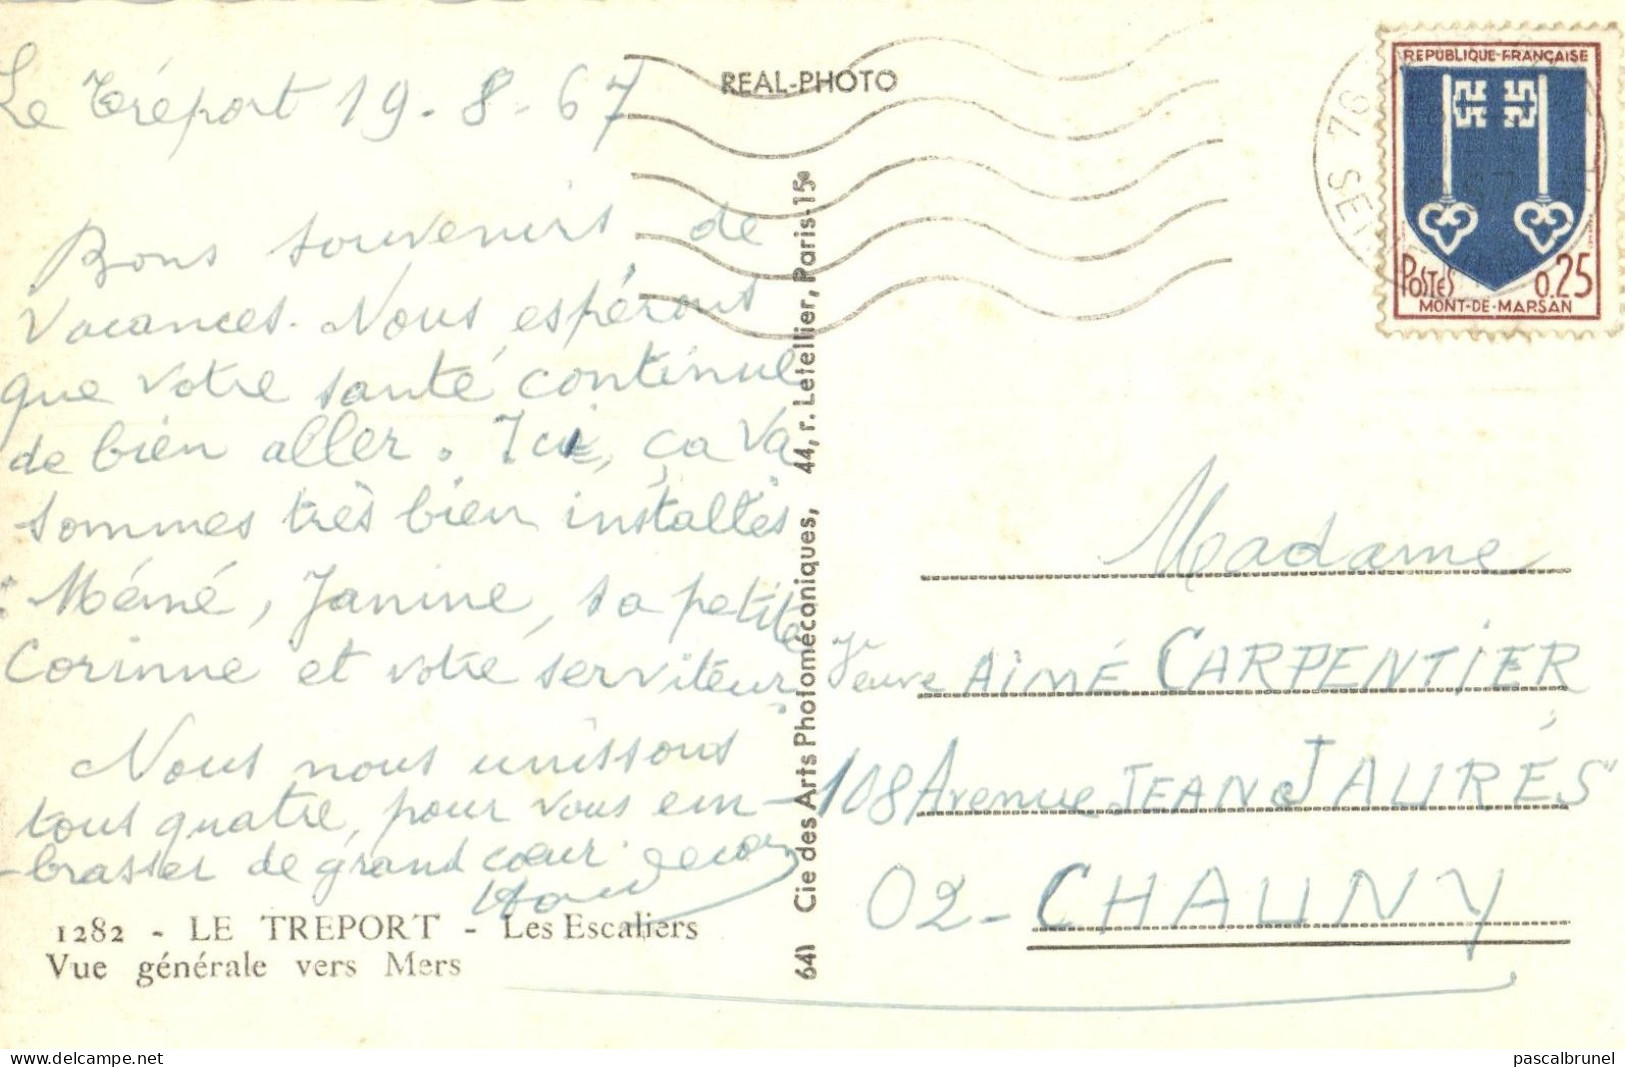 Le Tréport 19-8-67
Bons souvenirs de
Vacances. Nous espérons
que votre santé continue
de bien aller. Ici, ça va
sommes très bien installés
: Mémé, Janine, sa petite
Corinne et votre serviteur
Nous nous unissons
tous quatre, pour vous em-
-brasser de grand cœur.
1282 - LE TREPORT - Les Escaliers
Vue générale vers Mers
REAL-PHOTO
641 Cie des Arts Photomécaniques, 44, r. Letellier, Paris-15e
REPUBLIQUE-FRANÇAISE
POSTES 0.25
MONT-DE-MARSAN
76
SEI
Madame
Veuve AIMÉ CARPENTIER
108 Avenue JEAN JAURÉS
02 - CHAUNY
delcampe.net
pascalbrunel